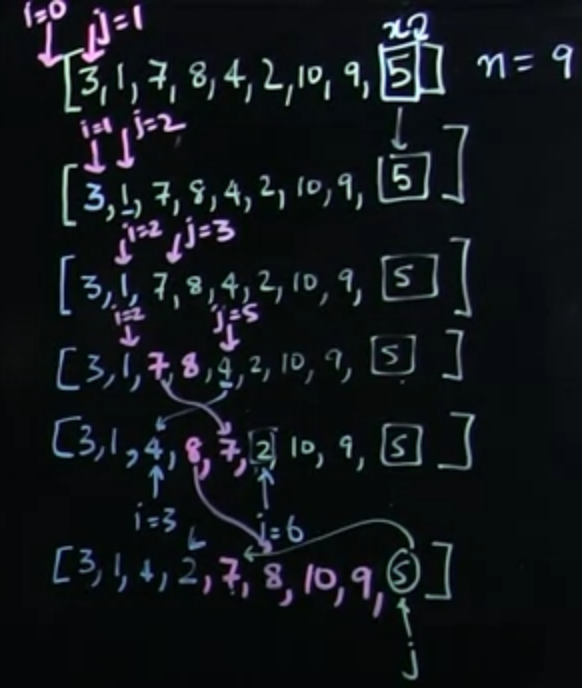 i=0 j=1 x2
[3, 1, 7, 8, 4, 2, 10, 9, 5] n = 9
i=1 j=2
[3, 1, 7, 8, 4, 2, 10, 9, 5]
i=2 j=3
[3, 1, 7, 8, 4, 2, 10, 9, 5]
i=2 j=5
[3, 1, 7, 8, 4, 2, 10, 9, 5]
[3, 1, 4, 8, 7, 2, 10, 9, 5]
i=3 j=6
[3, 1, 4, 2, 7, 8, 10, 9, 5]
j